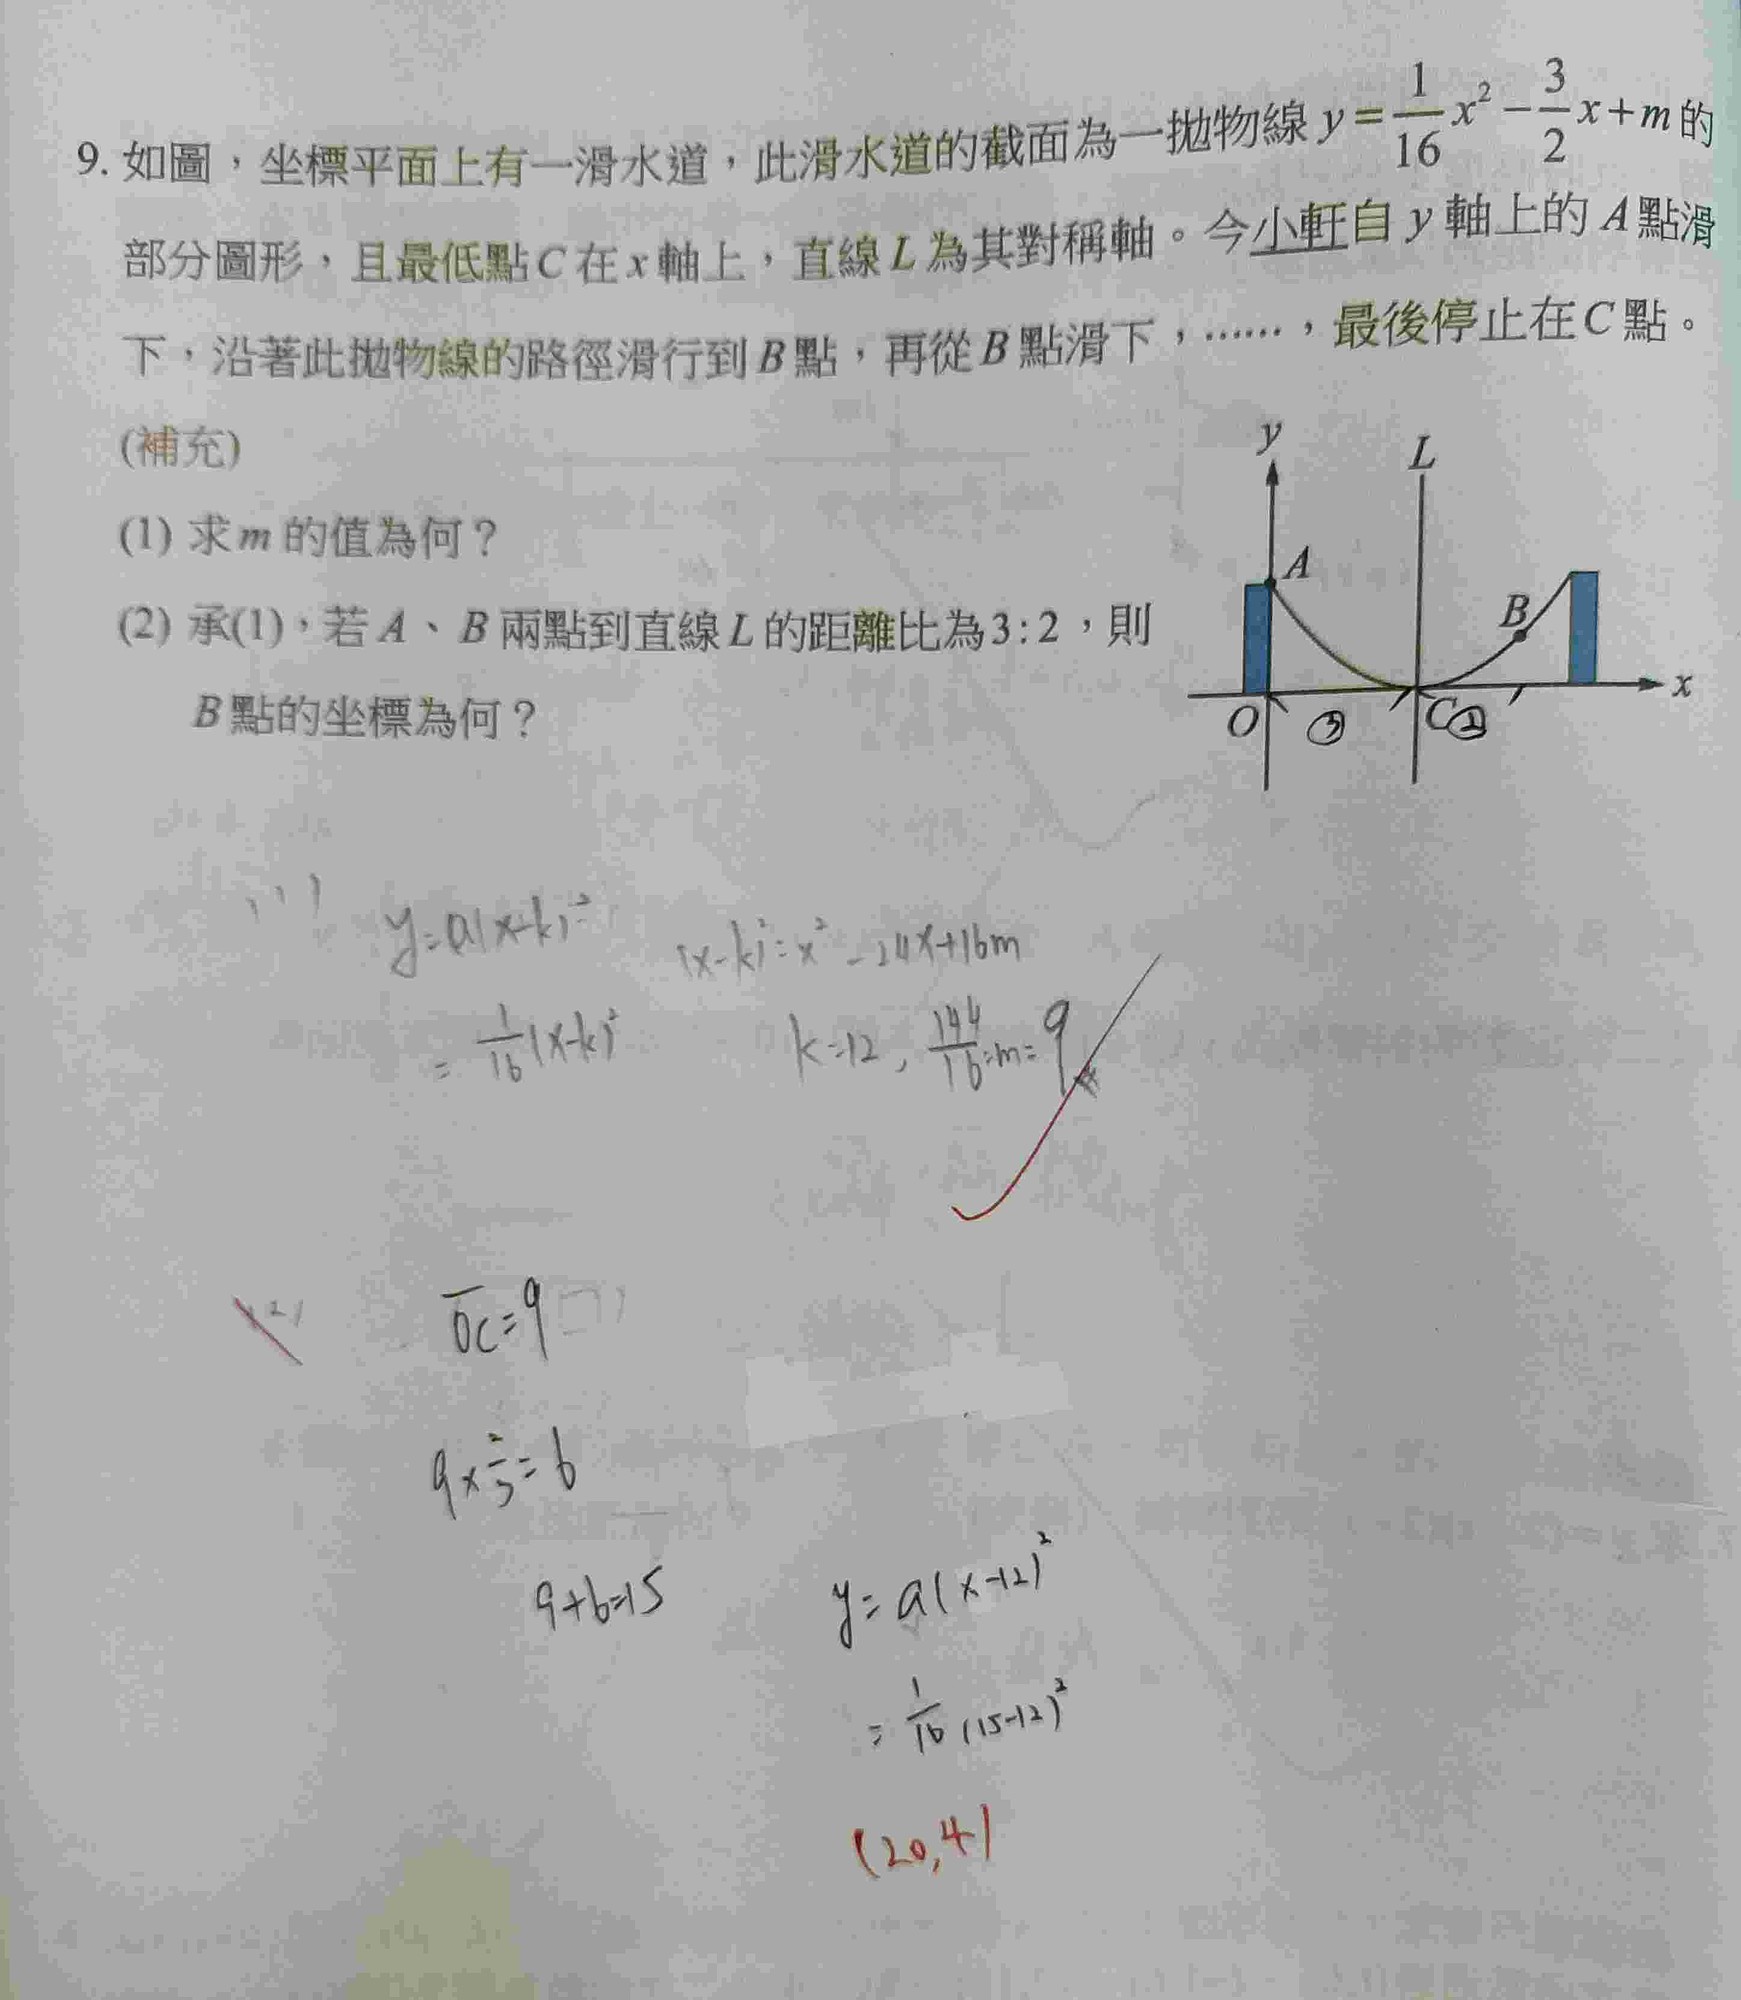 9. 如圖，坐標平面上有一滑水道，此滑水道的截面為一拋物線 y=1/16x²-3/2x+m的
部分圖形，且最低點C在x軸上，直線L為其對稱軸。今小軒自y軸上的A點滑
下，沿著此拋物線的路徑滑行到B點，再從B點滑下，……，最後停止在C點。
(補充)
(1) 求m的值為何？
(2) 承(1)，若A、B兩點到直線L的距離比為3:2，則
B點的坐標為何？
y
L
A
B
x
O
③
C
②
y=a(x-k)²
(x-k)²=x²-24x+16m
=1/16(x-k)²
k=12, 144/16=m=9
(2)
OC=9
9×2/3=6
9+6=15
y=a(x-12)²
=1/16(15-12)²
(20,4)